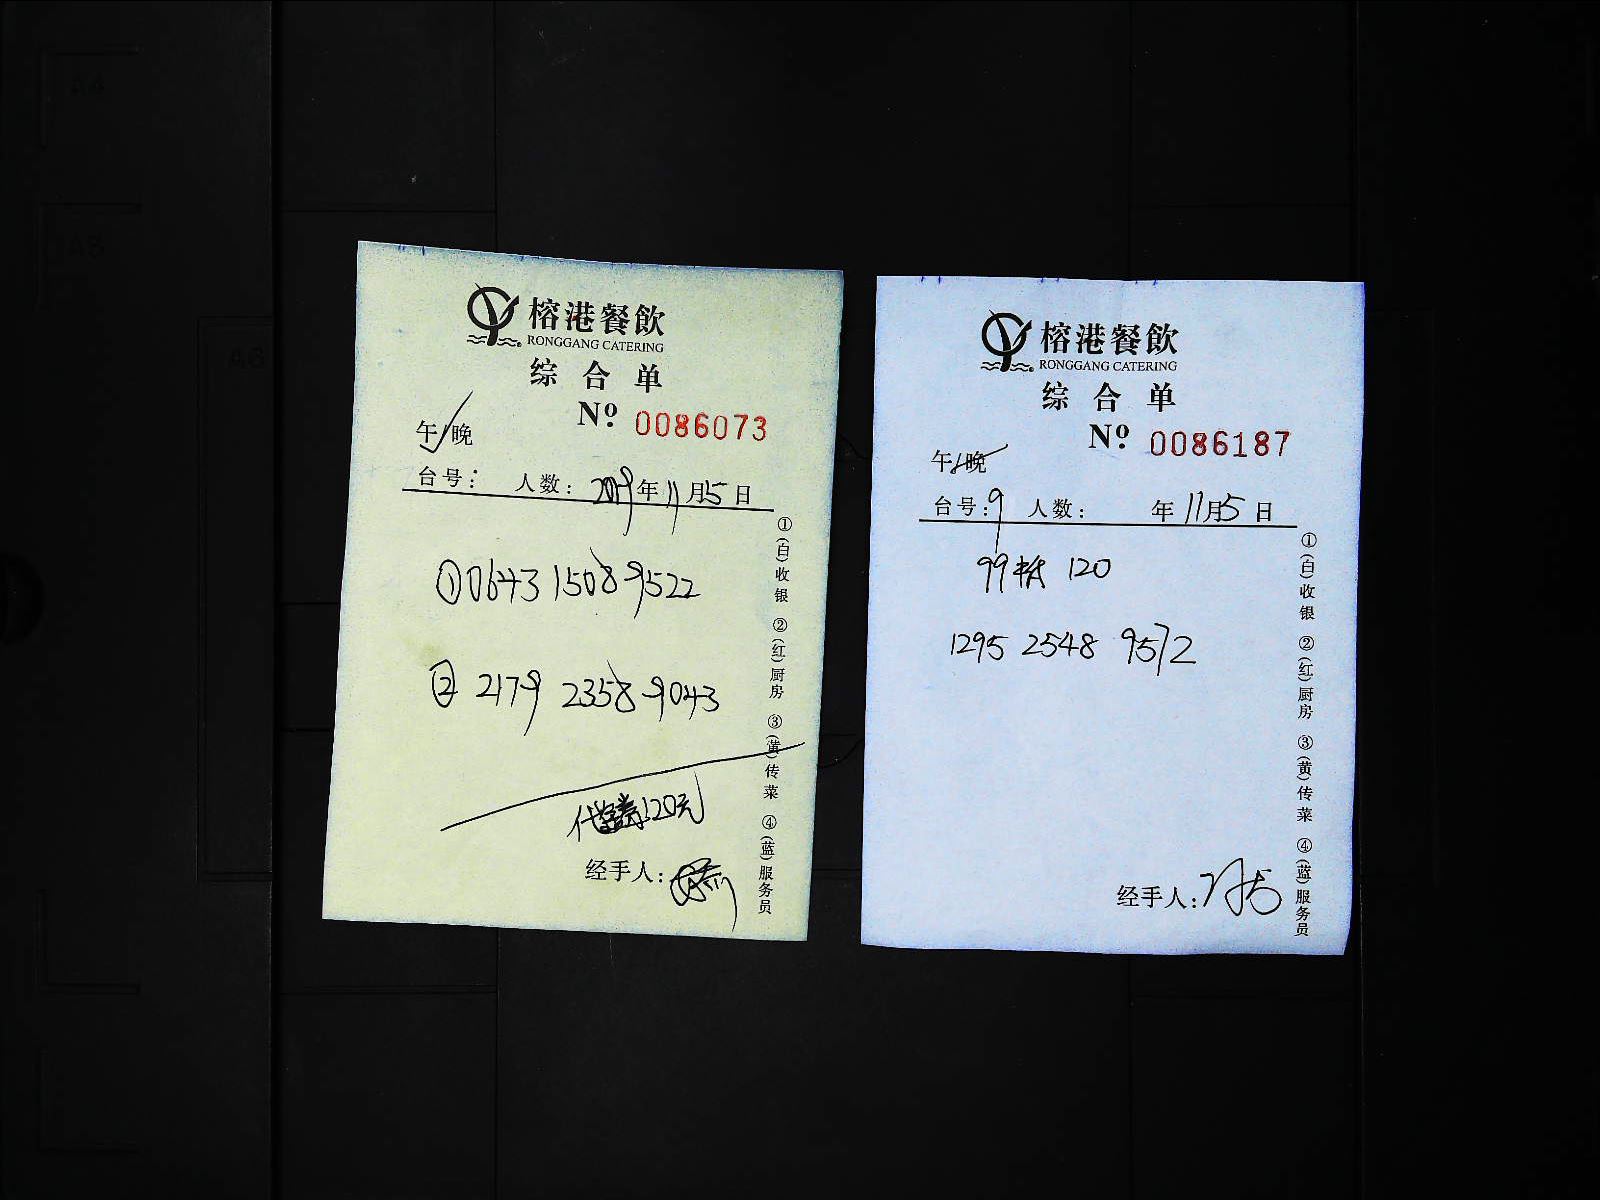 榕港餐飲
RONGGANG CATERING
综合单
Nº 0086073
午/晚
台号： 人数： 2019年11月5日
①0643 1508 9522
② 2179 2358 9043
代金券120元
经手人：
①(白)收银 ②(红)厨房 ③(黄)传菜 ④(蓝)服务员
榕港餐飲
RONGGANG CATERING
综合单
Nº 0086187
午/晚
台号：9 人数： 年11月5日
99抵 120
1295 2548 9572
经手人：
①(白)收银 ②(红)厨房 ③(黄)传菜 ④(蓝)服务员